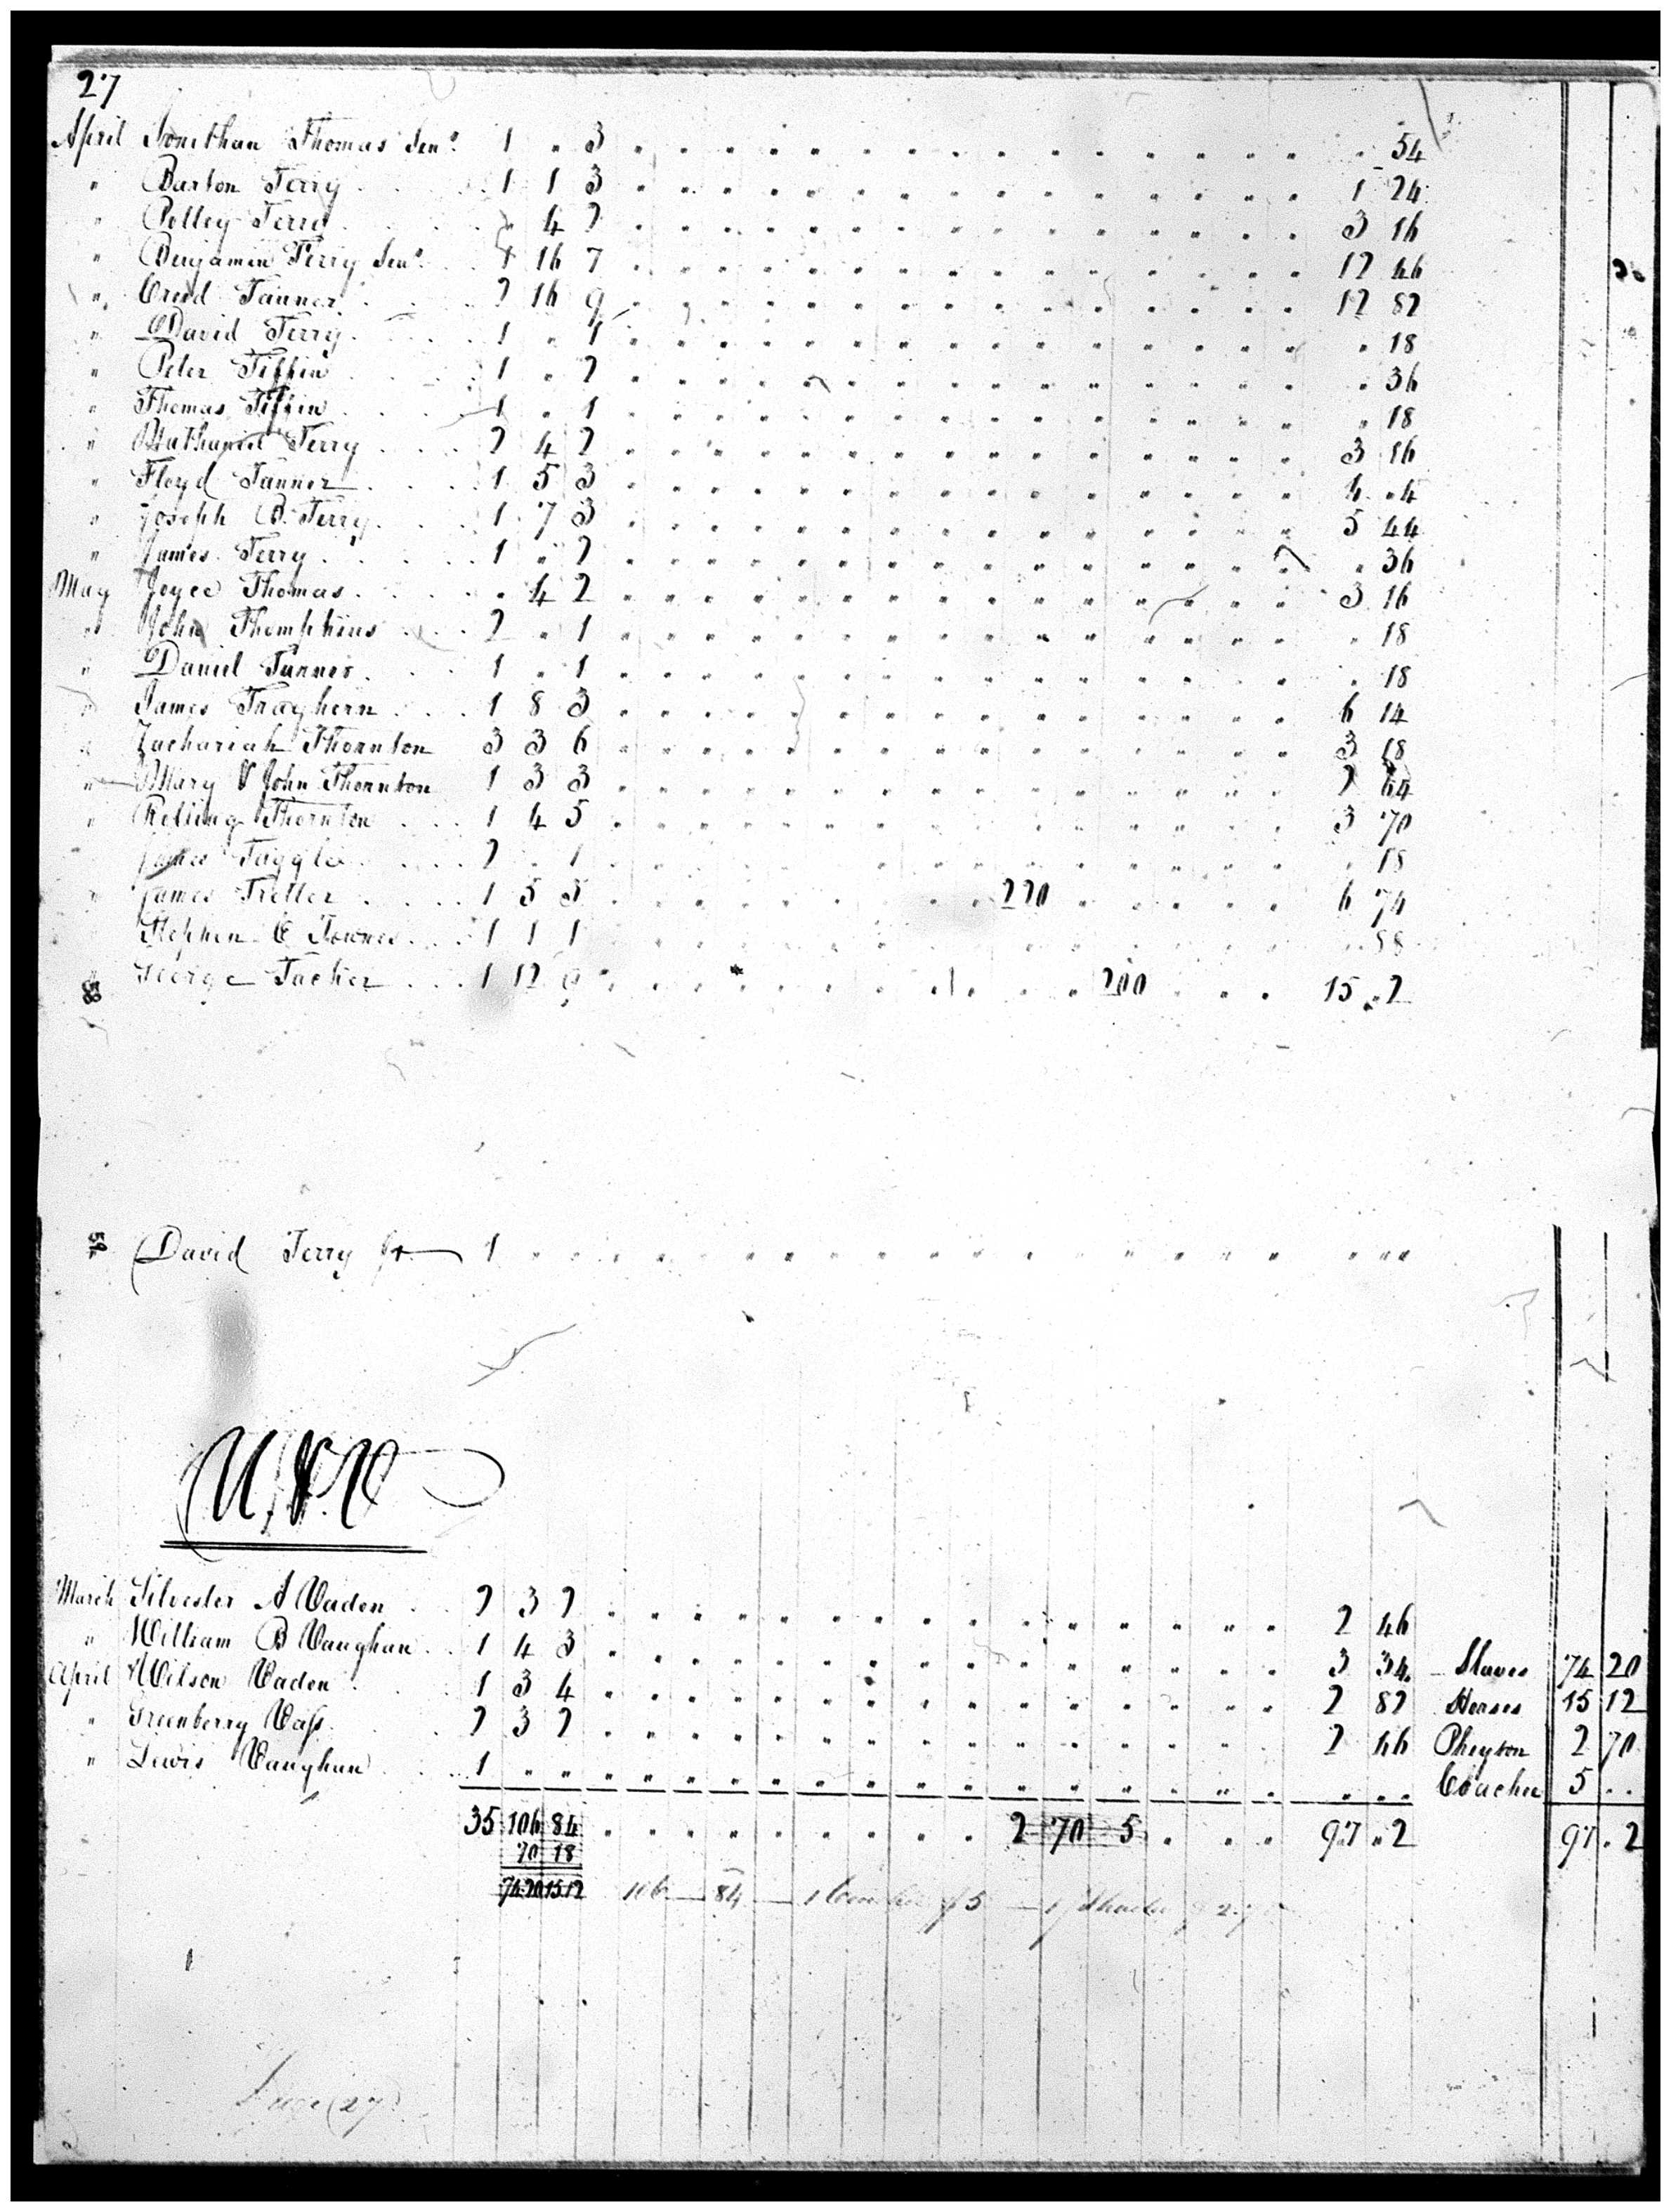 27
April Jonathan Thomas Senr. 1 " 3 " 54
" Barton Terry 1 1 3 1 24
" Polley Terry " 4 2 3 16
" Benjamin Terry Senr. 1 16 7 12 46
" Creed Tanner 2 16 9 12 82
" David Terry 1 " 1 " 18
" Peter Tiffin 1 " 2 " 36
" Thomas Tiffin 1 " 1 " 18
" Nathaniel Terry 2 4 2 3 16
" Floyd Tanner 1 5 3 4 " 4
" Joseph B. Terry 1 7 3 5 44
" James Terry 1 " 2 " 36
May Joyce Thomas " 4 2 3 16
" John Thompkins 2 " 1 " 18
" Daniel Tanner 1 " 1 " 18
" James Traghern 1 8 3 6 14
" Zachariah Thornton 3 3 6 3 18
" Mary & John Thornton 1 3 3 2 64
" Thornton 1 4 5 3 70
James Tuggle 2 " 1 " 18
" James Treller 1 5 3 270 6 74
Stephen C Townes 1 1 1 " 88
58 George Tucker 1 12 9 15 " 2
59 David Terry Jr 1 " " "
U, & V
March Silvester A Vaden 2 3 2 2 46
" William B Vaughan 1 4 3 3 34 Slaves 74 20
April Wilson Vaden 1 3 4 2 82 Horses 15 12
" Greenberry Vass 2 3 2 2 46 Pheyton 2 70
" Lewis Vaughan 1 " " " Coachee 5 ..
35 106 84 2 70 5 97 " 2 97 . 2
70 18
74.20 15 12 106 — 84 — 1 Coachee $5 — 1
(27)